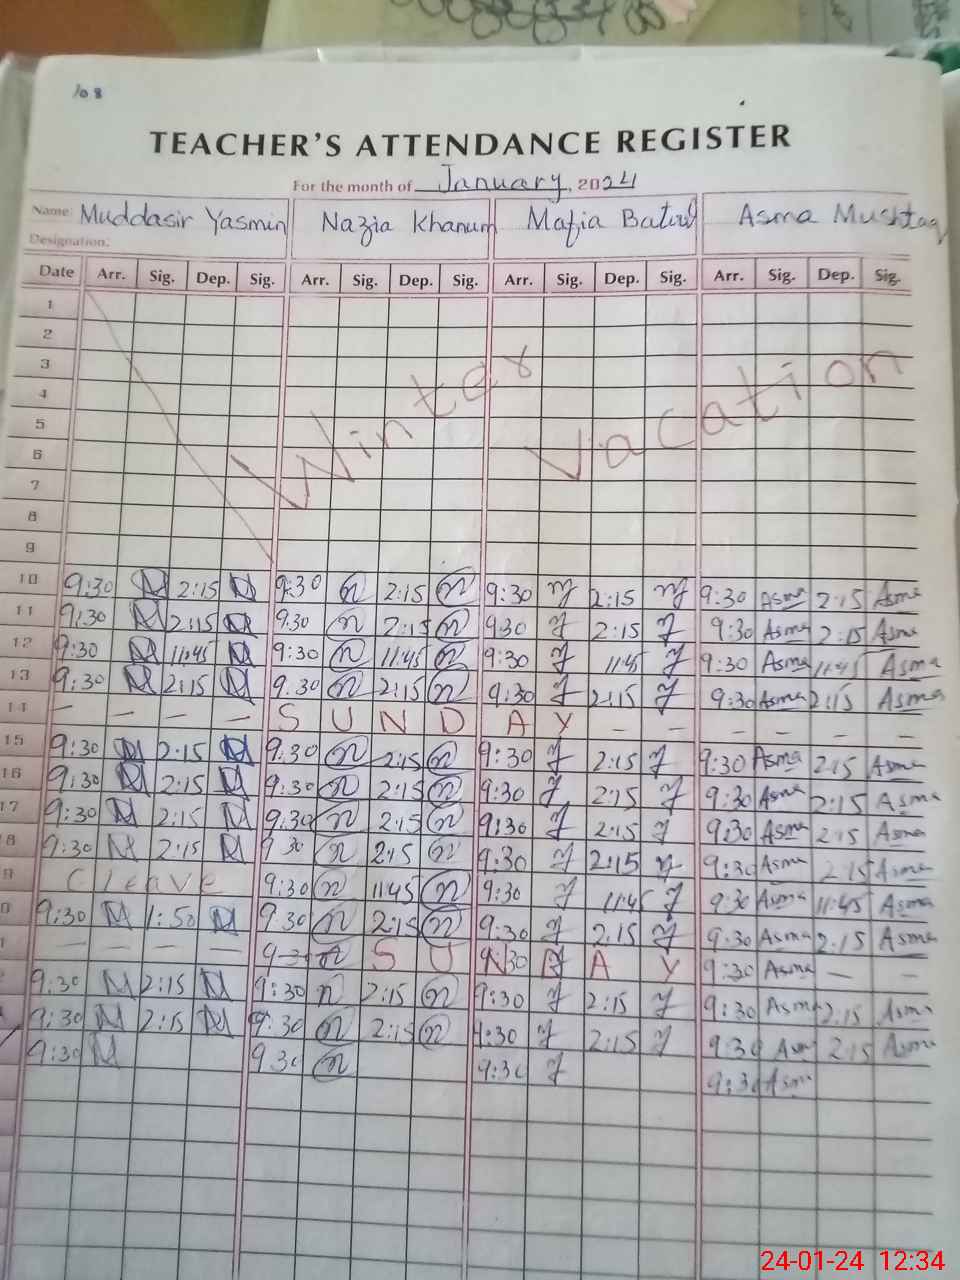 108
TEACHER'S ATTENDANCE REGISTER
For the month of January, 2024
Name: Muddasir Yasmin Nazia Khanum Mafia Batul Asma Mushtaq
Designation:
Date Arr. Sig. Dep. Sig. Arr. Sig. Dep. Sig. Arr. Sig. Dep. Sig. Arr. Sig. Dep. Sig.
1
2
3
4
5
6
7
8
9
Winter Vacation
10 9:30 2:15 9:30 2:15 9:30 2:15 9:30 Asma 2:15 Asma
11 9:30 2:15 9:30 2:15 9:30 2:15 9:30 Asma 2:15 Asma
12 9:30 11:45 9:30 11:45 9:30 11:45 9:30 Asma 11:45 Asma
13 9:30 2:15 9:30 2:15 9:30 2:15 9:30 Asma 2:15 Asma
14 – – – – S U N D A Y – – – – – –
15 9:30 2:15 9:30 2:15 9:30 2:15 9:30 Asma 2:15 Asma
16 9:30 2:15 9:30 2:15 9:30 2:15 9:30 Asma 2:15 Asma
17 9:30 2:15 9:30 2:15 9:30 2:15 9:30 Asma 2:15 Asma
8 9:30 2:15 9 30 2:15 9:30 2:15 9:30 Asma 2:15 Asma
9 C Leave 9:30 11:45 9:30 11:45 9:30 Asma 11:45 Asma
0 9:30 1:50 9:30 2:15 9:30 2:15 9:30 Asma 2:15 Asma
– – – – S U N D A Y 9:30 Asma – –
9:30 2:15 9:30 2:15 9:30 2:15 9:30 Asma 2:15 Asma
9:30 2:15 9:30 2:15 9:30 2:15 9:30 Asm 2:15 Asma
9:30 9 30 9:30 9:30 Asm
24-01-24 12:34